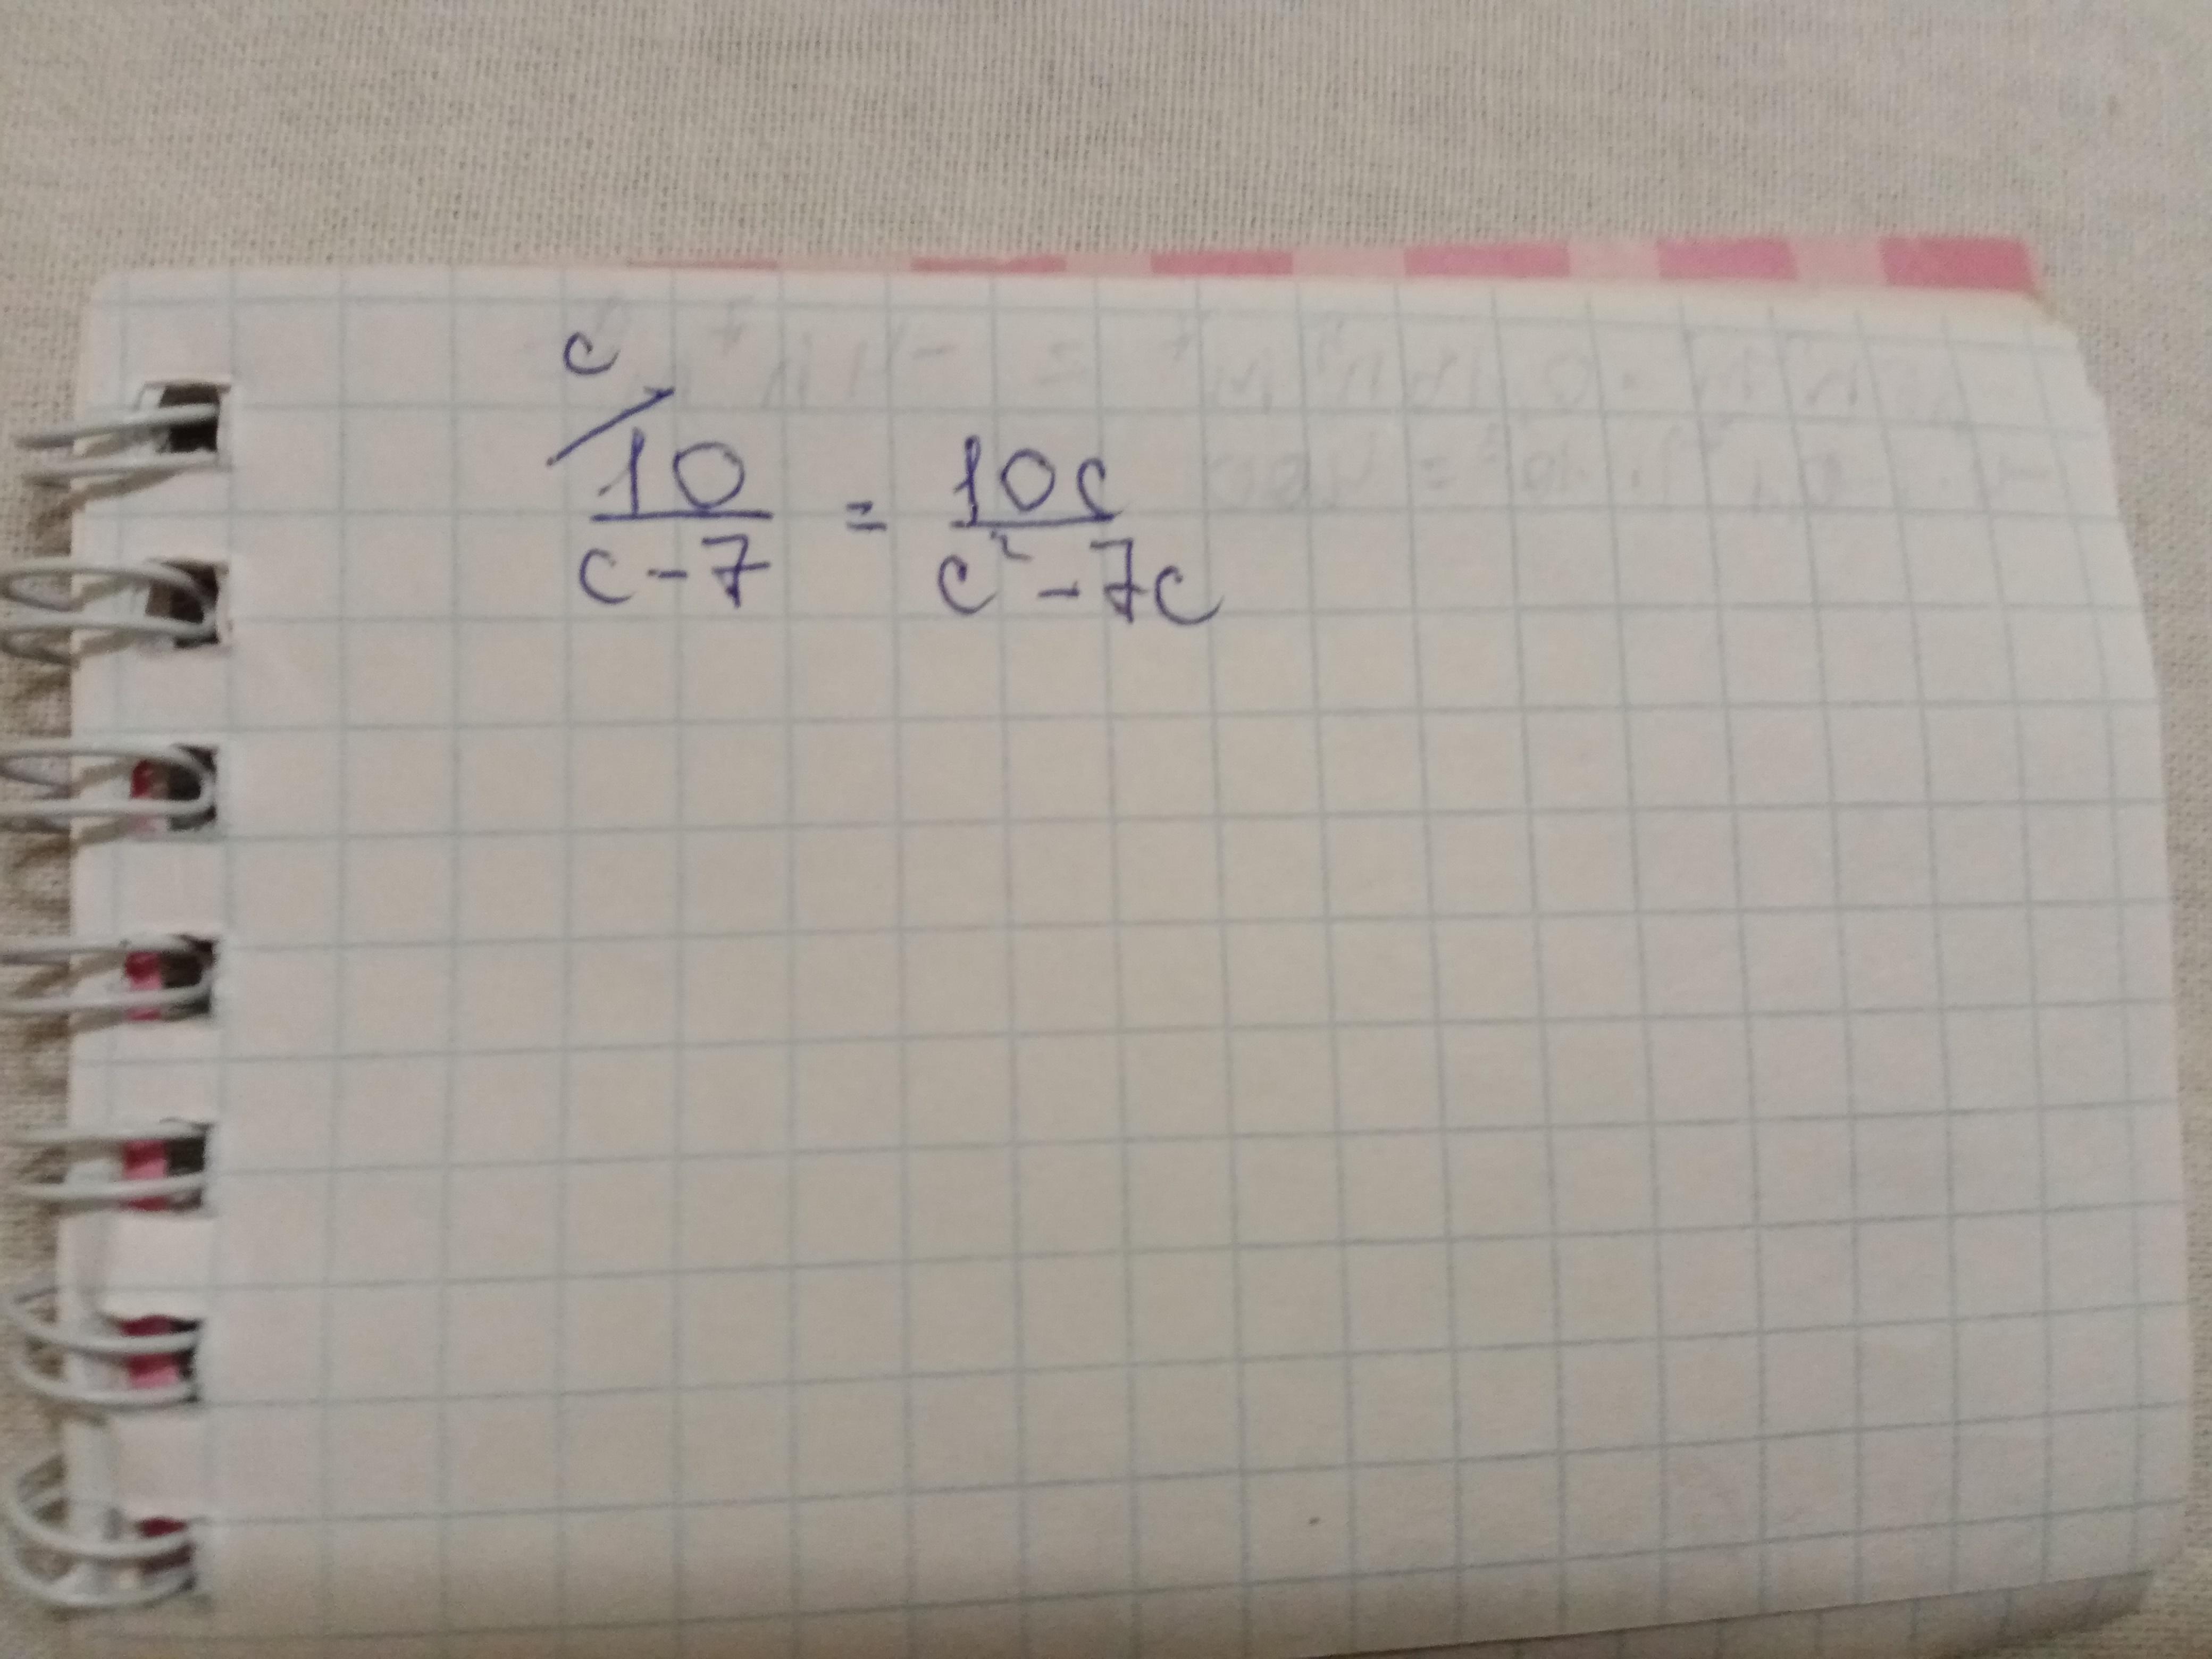 c/
10/(c-7) = 10c/(c²-7c)